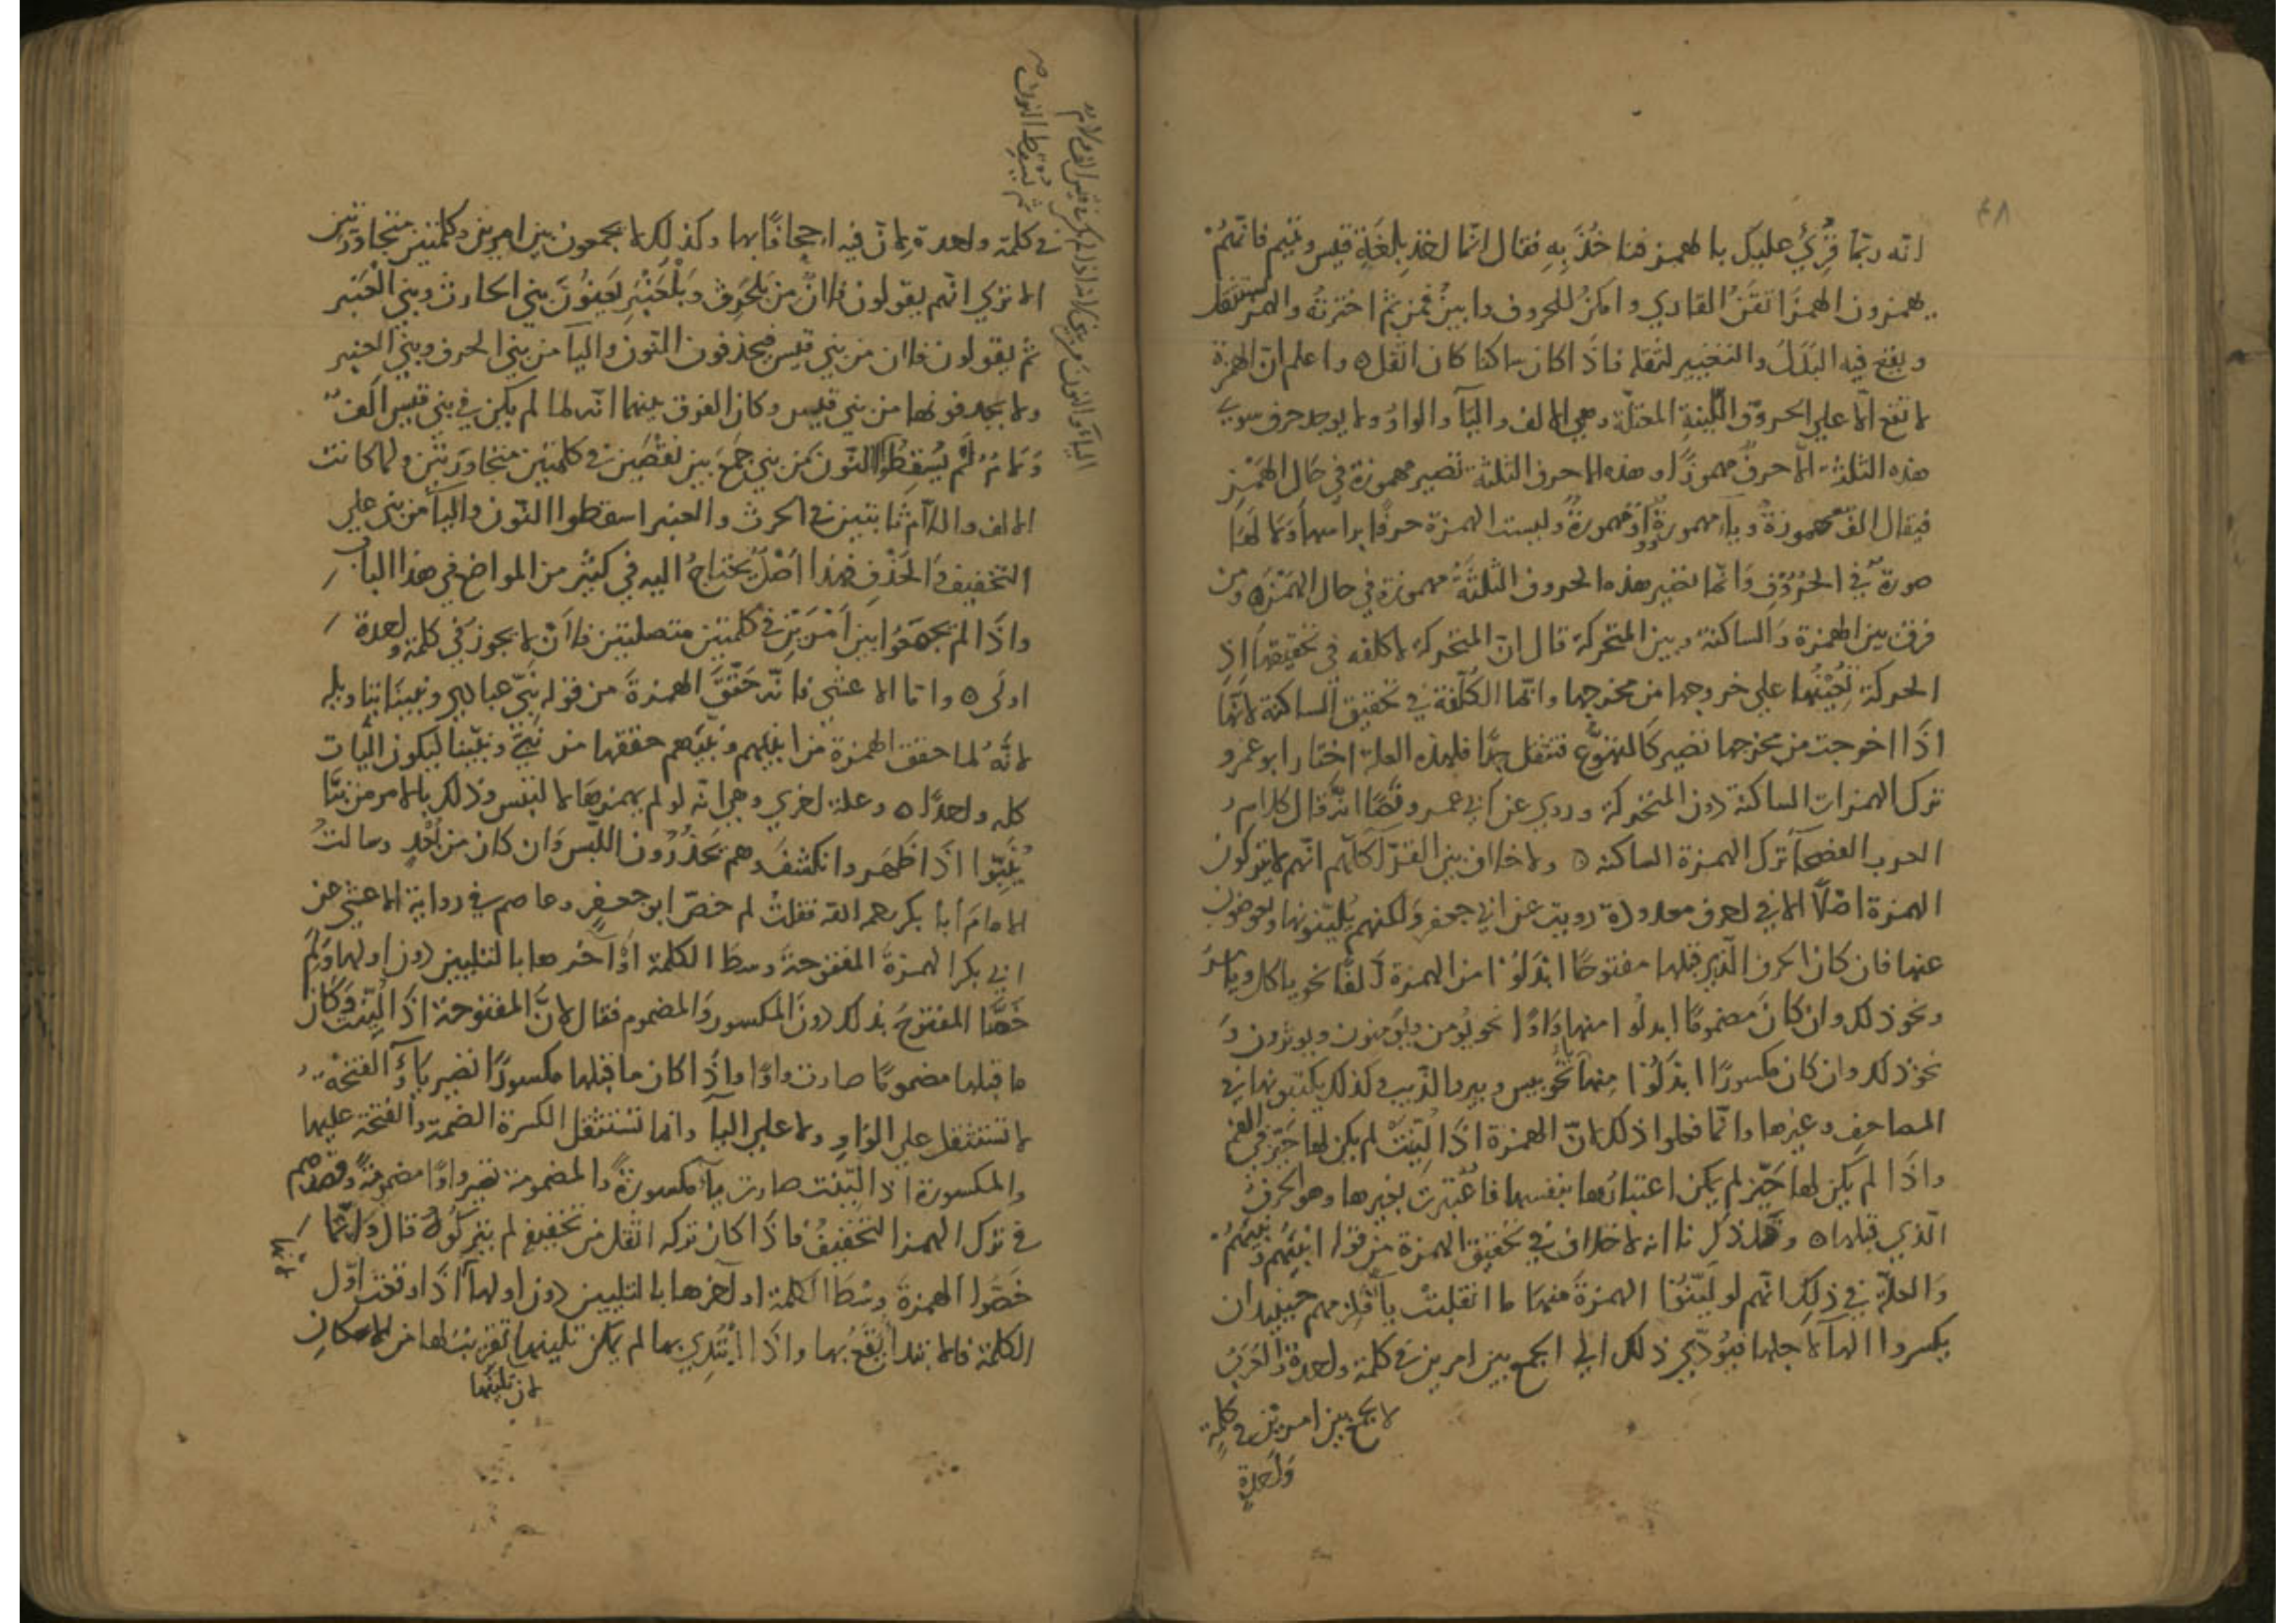 ٤٨
انّه ربّما قُرِئَ عليك بالهمز فتاخُذُ به فقال انّما لغة بلغة قيس وتميم فانّهم
يهمزون الهمز اتقنُ القاري وامكنُ للحروف وابينُ ثمّ اخترتُه والهمز يستثقل
ويقع فيه البَدَلُ والتغيير لثقله فاذا كان ساكنا كان اثقل ٥ واعلم انّ الهمزة
لا تقع الّا علي الحروف اللّينةِ المعتلّة وهي الالف واليآ والواوُ ولا يوجد حرف سوي
هذه الثلثة الّا حرفٌ مهموزٌ او هذه الاحرف الثلثة تصير مهموزة في حَالِ الهَمْزِ
فيقال الفٌ مهموزةٌ ويآء مهموزةٌ وَوَاوٌ مهموزةٌ وليست الهمزة حرفًا براسها وَمَا لَهَا
صورةٌ في الحُرُوْفِ وَانّما تصير هذه الحروف الثلثَةُ مهموزةً في حال الهَمْزَة ومن
فرق بين الهمزة وَالساكنة وبين المتحركة قال انّ المتحركة لا كلفه في تحقيقها اذِ
الحركة تُعِيْنُها علي خروجها من مخرجها وانّما الكُلْفة في تحقيق الساكنة لانّها
اذَا اخرجت من مخرجها تصير كالتهوّع فتثقل جِدًّا فلهذه العلة اختار ابو عمرو
ترك الهمزات الساكنة دون المتحركة وروي عن ابي عمرو نَصًّا انّه قال كلام
العرب الفصحآ ترك الهمزة الساكنة ٥ ولا خلاف بين القرّآ كلّهم انّهم لا يتركون
الهمزة اصْلًا الا في احرف معدودة رويت عن ابي جعفر وَلكنهم يُليّنونها ويعوضون
عنها فان كان الحرف الّذي قبلها مفتوحًا ابْدَلُوْا من الهمزة اَلفًا نحو ياكل وياسرُ
ونحو ذلك وان كَانَ مضمومًا ابدلُوا منها وَاوًا نحو يُومن ويُومنون ويوثرون وَ
نحو ذلك وان كان مكسورًا ابْدَلُوْا مِنها يآ نحُو بيس وبير والذّيب وكذلك يكتبونها في
المصاحف وغيرها وانّما فعلوا ذلك لانّ الهمزة اذَا لُيِّنَتْ لم يكن لها حَيّز في الفم
واذَا لم يكن لها حَيّز لم يكن اعتبارُها بنفسها فاعْتُبرت بغيرها وهو الحرفُ
الّذي قبلها ٥ وقد ذُكر لنا انه لا خلاف في تحقيق الهمزة من قوله انْبِئْهُمْ ونَبِّئْهُمْ
وَالعلّة في ذلك انّهم لو ليّنوُا الهمزةَ منهما ما انقلبتْ يآ فلزمهم حينيذ ان
يكسروا الهآ لاجلها فيُؤدّي ذلك الي الجمع بين امرين في كلمة واحدة والعَرَبُ
لا تجمع بين امرين في كلمة
وَاحدةٍ
في كلمة واحدة لِانّ فيه اجحافًا بها وكذلك لا يجمعون بين امرين في كلمتين متجاورتين
الا تري انّهم يقولون فلانٌ من بَلْحَرِث وَبَلْعَنْبَرِ يَعْنُوْنَ بني الحارث وبني الْعَنبر
ثمّ يقولون فلان من بني قيس فيحذفون النّون واليآ من بني الحرث وبني العنبر
ولا يحذفونها من بني قيس وكان الفرق بينهما انّه لما لم يكن في بني قيس اَلفٌ
وَلَامٌ لَمْ يُسقِطُوا النّون مَن بني جَمعَ بين نقْصَين في كلمتين متجاورتين ولما كانت
الالف واللّام ثابتين في الحرث والعنبر اسقطوا النّون واليآ من بني علي
التخفيف وَالحَذْفِ فهذا اصْلٌ يُحْتاجُ اليه في كثير من المواضع في هذا الباب
واذَا لم يجمَعُوا بين اَمْرَيْنِ في كلمتين متصلتين فلاَنْ لا يجوز في كلمة واحدة
اولَى ٥ وامّا الاعشي فانّه حَقَّقَ الهمزةَ من قوله نَبّيْ عبادي ونبينا بتاويله
لانّهُ لما حقق الهمزة من انبيهم ونبّيهم حققها من نَبّي ونبّينا ليكون البَاب
كله واحدًا ٥ وعلة اخري وهي انّه لو لم يهمزها لالتبس وذلك بالامر من نبّا
يُنَبّوا اذَا ظَهَر وانكشف وهم يَحْذَرُون اللبْسَ وَان كان من بُعْدٍ وسالتُ
الامامَ أبا بكر رحمه الله فقلتُ لم خصّ ابن جعفرٍ وعاصم في رواية الاعشي عن
ابي بكر الهمزةَ المفتوحة وسطَ الكلمة اَوْ آخرها بالتليين دون اولها وَلِمَ
خَصَّا المفتوحَ بذلك دونَ المكسور وَالمضموم فقال لانَّ المفتوحة اذَا لُيّنتْ وَكَان
ما قبلها مضمومًا صارت واوًا واِذَا كان ما قبلها مكسورًا تصير يآءً والفتحة
لا تستثقل علي الوَاو ولا علي اليآ وانما تسْتثقل الكسرة الضمة والفتحة عليها
والمكسورة اذا لُيّنت صارت يآءً مكسورةً والمضمومة تصير واوًا مضمومةً وقصدهم
في ترك الهمز التخفيفُ فاذَا كان تركه اثقل من تخفيفٍ لم يتركُوْهُ قال وَانّما
خَصّوا الهمزةَ وسْطَ الكلمة او اخرها بالتليين دون اولها اذَا وقعت اوّل
الكلمة فالابتدأ يَقَعُ بها واذَا ابْتُدِي بها لم يمكن تليينها تقرّبتْ لها من الاسكان
لان تليينها
ثم تُسقط النون